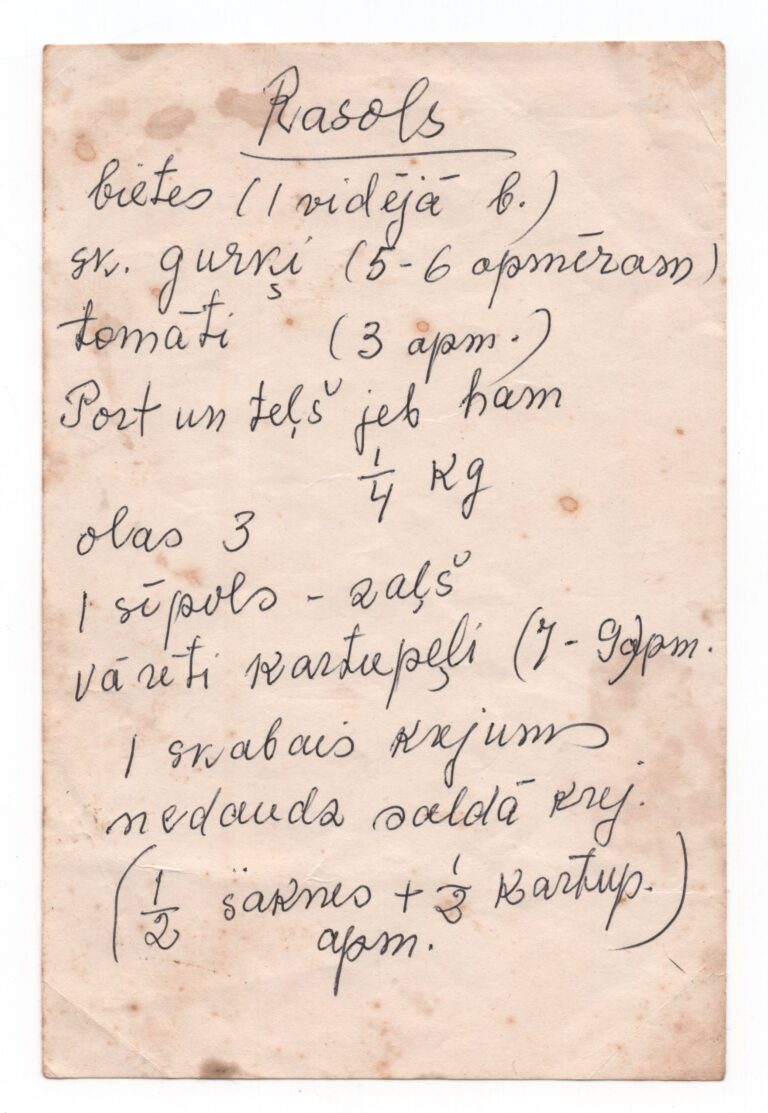 Rasols
bietes (1 vidējā b.)
sk. gurķi (5-6 apmēram)
tomāti (3 apm.)
Port un teļš jeb ham
1/4 kg
olas 3
1 sīpols - zaļš
vārēti kartupeļi (7-9) apm.
1 skabais krejums
nedaudz saldā krej.
(1/2 saknes + 1/2 kartup.
apm.)